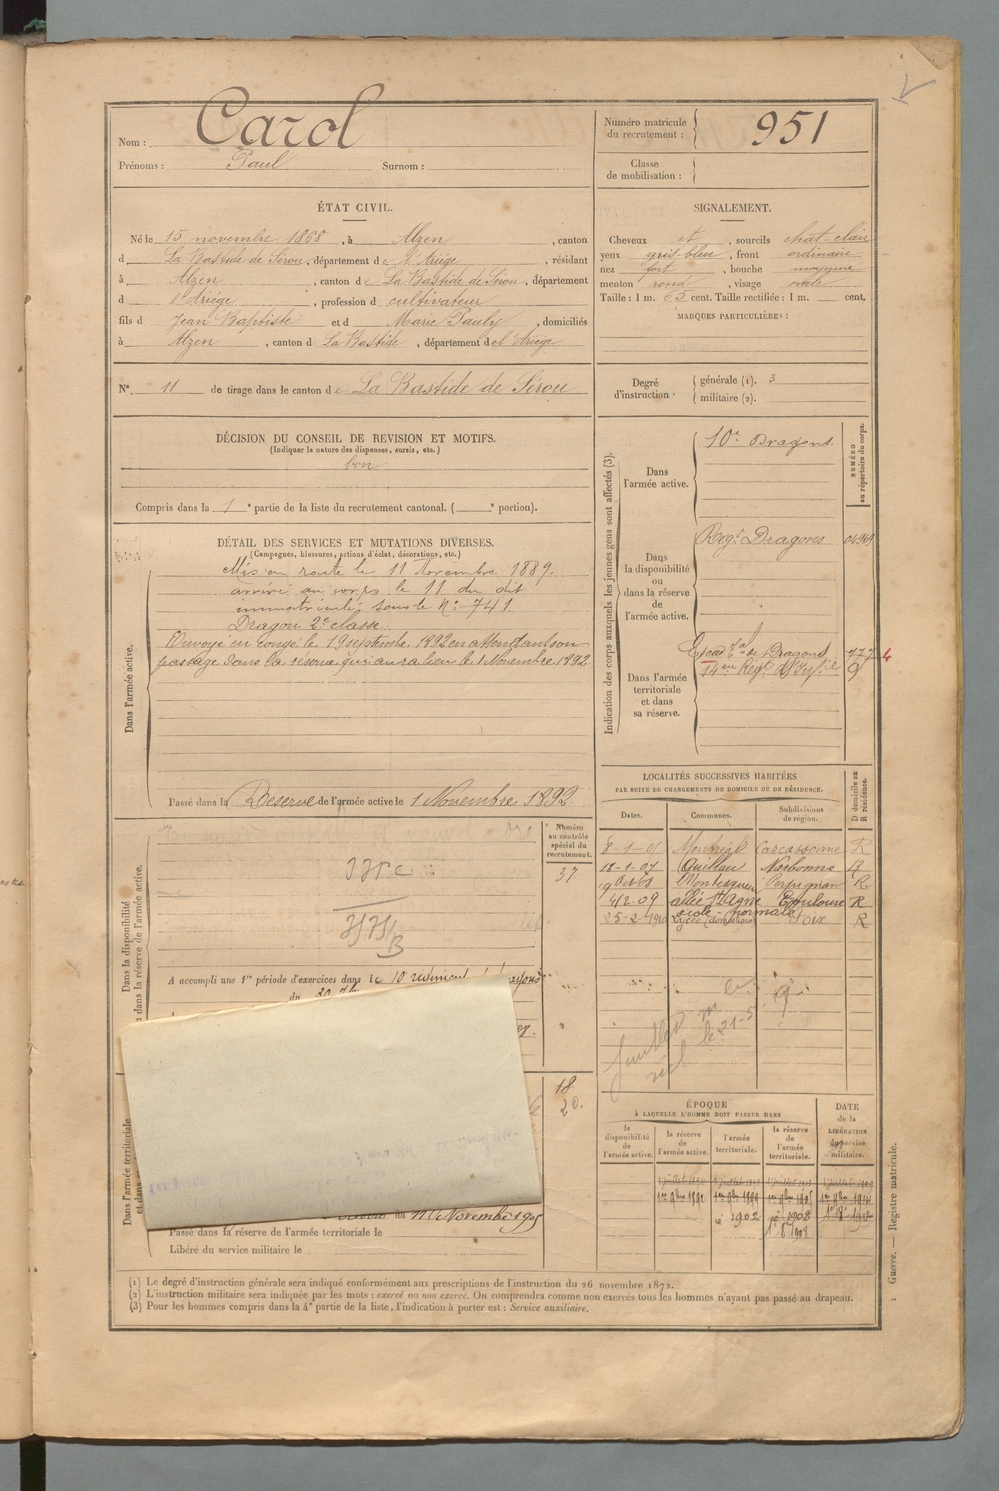 Nom : Carol
Prénoms : Paul Surnom :
Numéro matricule du recrutement : 951
Classe de mobilisation :
ÉTAT CIVIL.
Né le 15 novembre 1868, à Alzen, canton
d La Bastide de Sérou, département de l'Ariége, résidant
à Alzen, canton de La Bastide de Sérou, département
d l'Ariége, profession d cultivateur
fils d Jean Baptiste et d Marie Pauly, domiciliés
à Alzen, canton d La Bastide, département de l'Ariége
N° 11 de tirage dans le canton de La Bastide de Sérou
SIGNALEMENT.
Cheveux et, sourcils chat-clair
yeux gris-bleu, front ordinaire
nez fort, bouche moyenne
menton rond, visage ovale
Taille : 1 m. 63 cent. Taille rectifiée : 1 m. cent.
MARQUES PARTICULIÈRES :
Degré d'instruction. générale (1). 3
militaire (2).
DÉCISION DU CONSEIL DE REVISION ET MOTIFS.
(Indiquer la nature des dispenses, sursis, etc.)
bon
Compris dans la 1e partie de la liste du recrutement cantonal. ( e portion).
DÉTAIL DES SERVICES ET MUTATIONS DIVERSES.
(Campagnes, blessures, actions d'éclat, décorations, etc.)
Dans l'armée active.
Mis en route le 11 Novembre 1889.
arrivé au corps le 11 du dit
immatriculé sous le N° 741.
Dragon 2e classe.
Envoyé en congé le 19 septembre 1892 en attendant son
passage dans la réserve qui aura lieu le 1 Novembre 1892
Passé dans la Réserve de l'armée active le 1 Novembre 1892.
Indication des corps auxquels les jeunes gens sont affectés (3).
NUMÉRO au répertoire du corps.
Dans l'armée active.
10e Dragons
Dans la disponibilité ou dans la réserve de l'armée active.
Regt Dragons
Dans l'armée territoriale et dans sa réserve.
de Dragons 777
Regt d'
LOCALITÉS SUCCESSIVES HABITÉES
PAR SUITE DE CHANGEMENTS DE DOMICILE OU DE RÉSIDENCE.
D domicile ou R résidence.
Dates. Communes. Subdivisions de région.
8-1-01 Montréal Carcassonne R
18-1-07 Quillan Narbonne R
Montesquieu Perpignan R
4/2-09 allée St Agne Toulouse R
école normale
25-2-1910 Lycée (domestique) Foix R
le 21-5
Dans la disponibilité ou dans la réserve de l'armée active.
Numéro au contrôle spécial du recrutement.
37
A accompli une 1re période d'exercices dans le 10 régiment
du
18
20.
Dans l'armée territoriale
et dans
du 1 Novembre 1905
Passé dans la réserve de l'armée territoriale le
Libéré du service militaire le
ÉPOQUE
À LAQUELLE L'HOMME DOIT PASSER DANS
la disponibilité de l'armée active.
la réserve de l'armée active.
l'armée territoriale.
la réserve de l'armée territoriale.
DATE de la LIBÉRATION du service militaire.
1902 1908
1908
(1) Le degré d'instruction générale sera indiqué conformément aux prescriptions de l'instruction du 26 novembre 1872.
(2) L'instruction militaire sera indiquée par les mots : exercé ou non exercé. On comprendra comme non exercés tous les hommes n'ayant pas passé au drapeau.
(3) Pour les hommes compris dans la 4e partie de la liste, l'indication à porter est : Service auxiliaire.
1 Guerre. — Registre matricule.